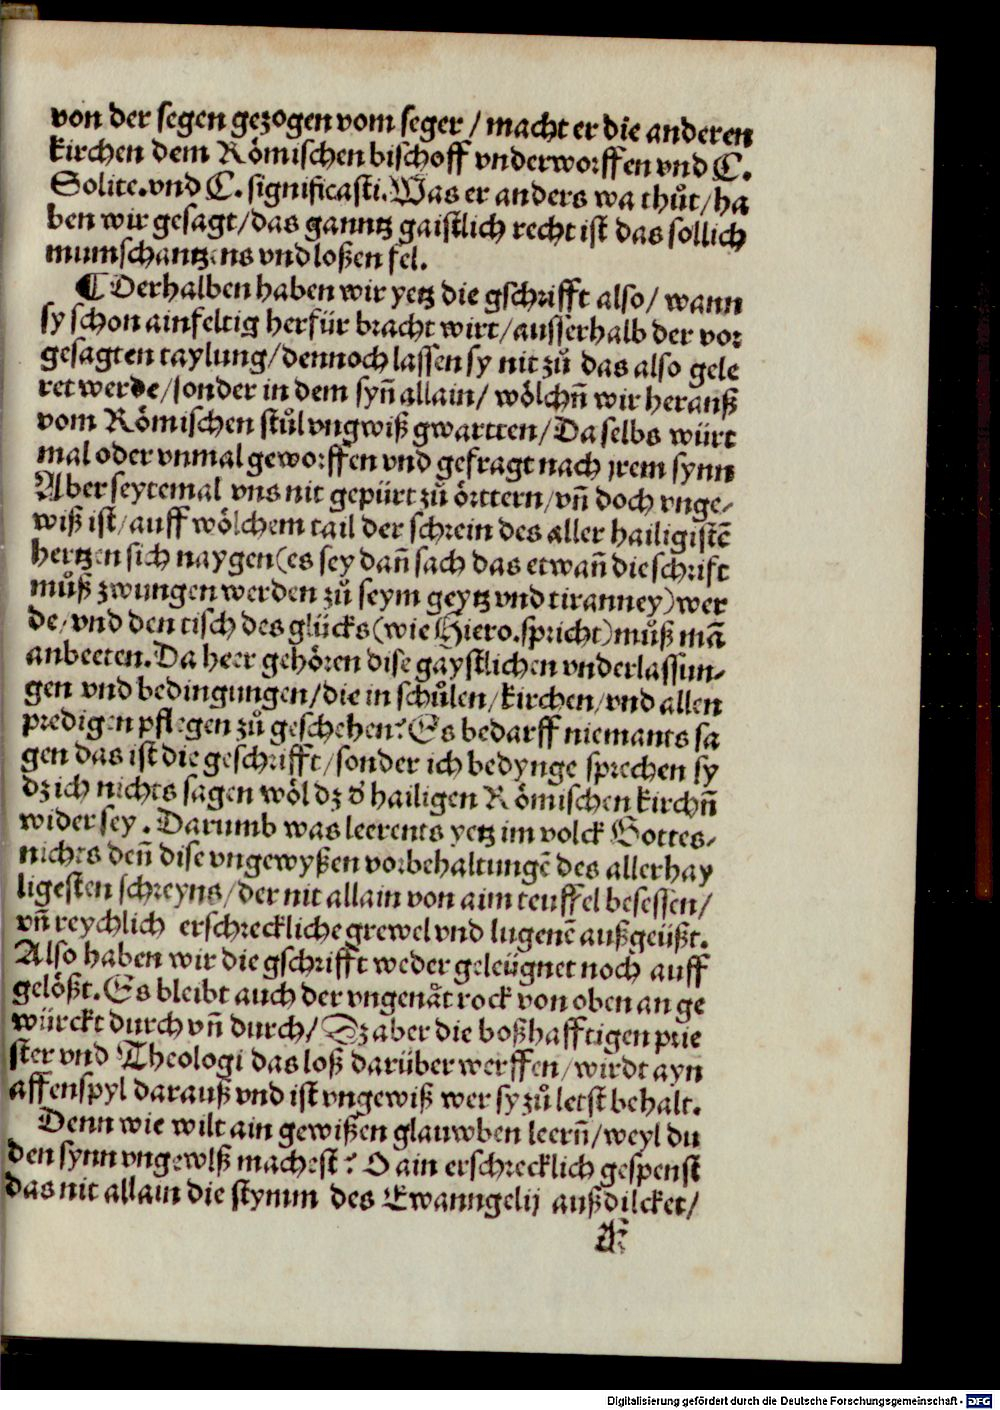 von der segen gezogen vom seger / macht er die anderen
kirchen dem Römischen bischoff vnderworffen vnd C.
Solite. vnd C. significasti. Was er anders wa thůt / ha
ben wir gesagt / das ganntz gaistlich recht ist das sollich
mumschantzens vnd loßen fel.
¶ Derhalben haben wir yetz die gschrifft also / wann
sy schon ainfeltig herfür bracht wirt / ausserhalb der vor
gesagten taylung / dennoch lassen sy nit zů das also gele
ret werde / sonder in dem syn̄ allain / wölchn̄ wir herauß
vom Römischen stůl vngwiß gwartten / Da selbs würt
mal oder vnmal geworffen vnd gefragt nach jrem synn
Aber seytemal vns nit gepürt zů örttern / vn̄ doch vnge-
wiß ist / auff wölchem tail der schrein des aller hailigistē
hertzen sich naygen (es sey dan̄ sach das etwan̄ die schrift
můß zwungen werden zů seym geytz vnd tiranney) wer
de / vnd den tisch des glücks (wie Hiero. spricht) můß mā
anbeeten. Da heer gehören dise gaystlichen vnderlassun-
gen vnd bedingungen / die in schůlen / kirchen / vnd allen
predigen pflegen zů geschehen? Es bedarff niemants sa
gen das ist die geschrifft / sonder ich bedynge sprechen sy
dz ich nichts sagen wöl dz d' hailigen Römischen kirchn̄
wider sey. Darumb was leerents yetz im volck Gottes-
nichts den̄ dise vngewyßen vorbehaltungē des allerhay
ligesten schreyns / der nit allain von aim teuffel besessen /
vn̄ reychlich erschreckliche grewel vnd lugenē außgeüßt.
Also haben wir die gschrifft weder geleügnet noch auff
gelößt. Es bleibt auch der vngenåt rock von oben an ge
würckt durch vn̄ durch / Dz aber die boßhafftigen prie
ster vnd Theologi das loß darüber werffen / wirdt ayn
affenspyl darauß vnd ist vngewiß wer sy zů letst behalt.
Denn wie wilt ain gewißen glauwben leern̄ / weyl du
den synn vngewiß machest? O ain erschrecklich gespenst
das nit allain die stymm des Ewanngelij außdilcket /
Digitalisierung gefördert durch die Deutsche Forschungsgemeinschaft - DFG